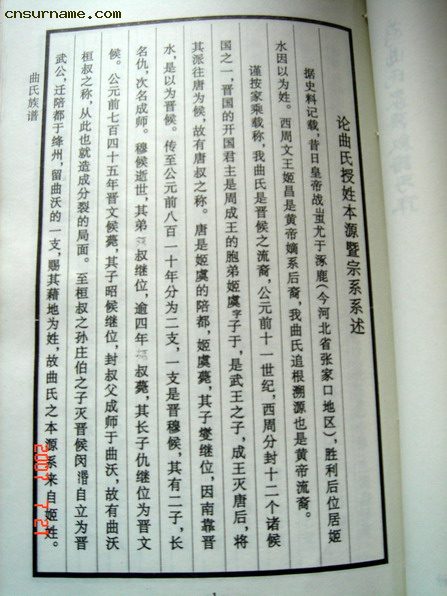 cnsurname.com
论曲氏授姓本源暨宗系系述
据史料记载，昔日皇帝战蚩尤于涿鹿（今河北省张家口地区），胜利后位居姬
水因以为姓。西周文王姬昌是黄帝嫡系后裔，我曲氏追根溯源也是黄帝流裔。
谨按家乘载称，我曲氏是晋候之流裔，公元前十一世纪，西周分封十二个诸候
国之一，晋国的开国君主是周成王的胞弟姬虞字子于，是武王之子，成王灭唐后，将
其派往唐为候，故有唐叔之称。唐是姬虞的陪都，姬虞薨，其子燮继位，因南靠晋
水，是以为晋候。传至公元前八百一十年分为二支，一支是晋穆候，其有二子，长
名仇，次名成师。穆候逝世，其弟 叔继位，逾四年 叔薨，其长子仇继位为晋文
候。公元前七百四十五年晋文候薨，其子昭候继位，封叔父成师于曲沃，故有曲沃
桓叔之称，从此也就造成分裂的局面。至桓叔之孙庄伯之子灭晋候闵 自立为晋
武公，迁陪都于绛州，留曲沃的一支，赐其藉地为姓，故曲氏之本源系来自姬姓。
曲氏族谱
2007 7 27
1